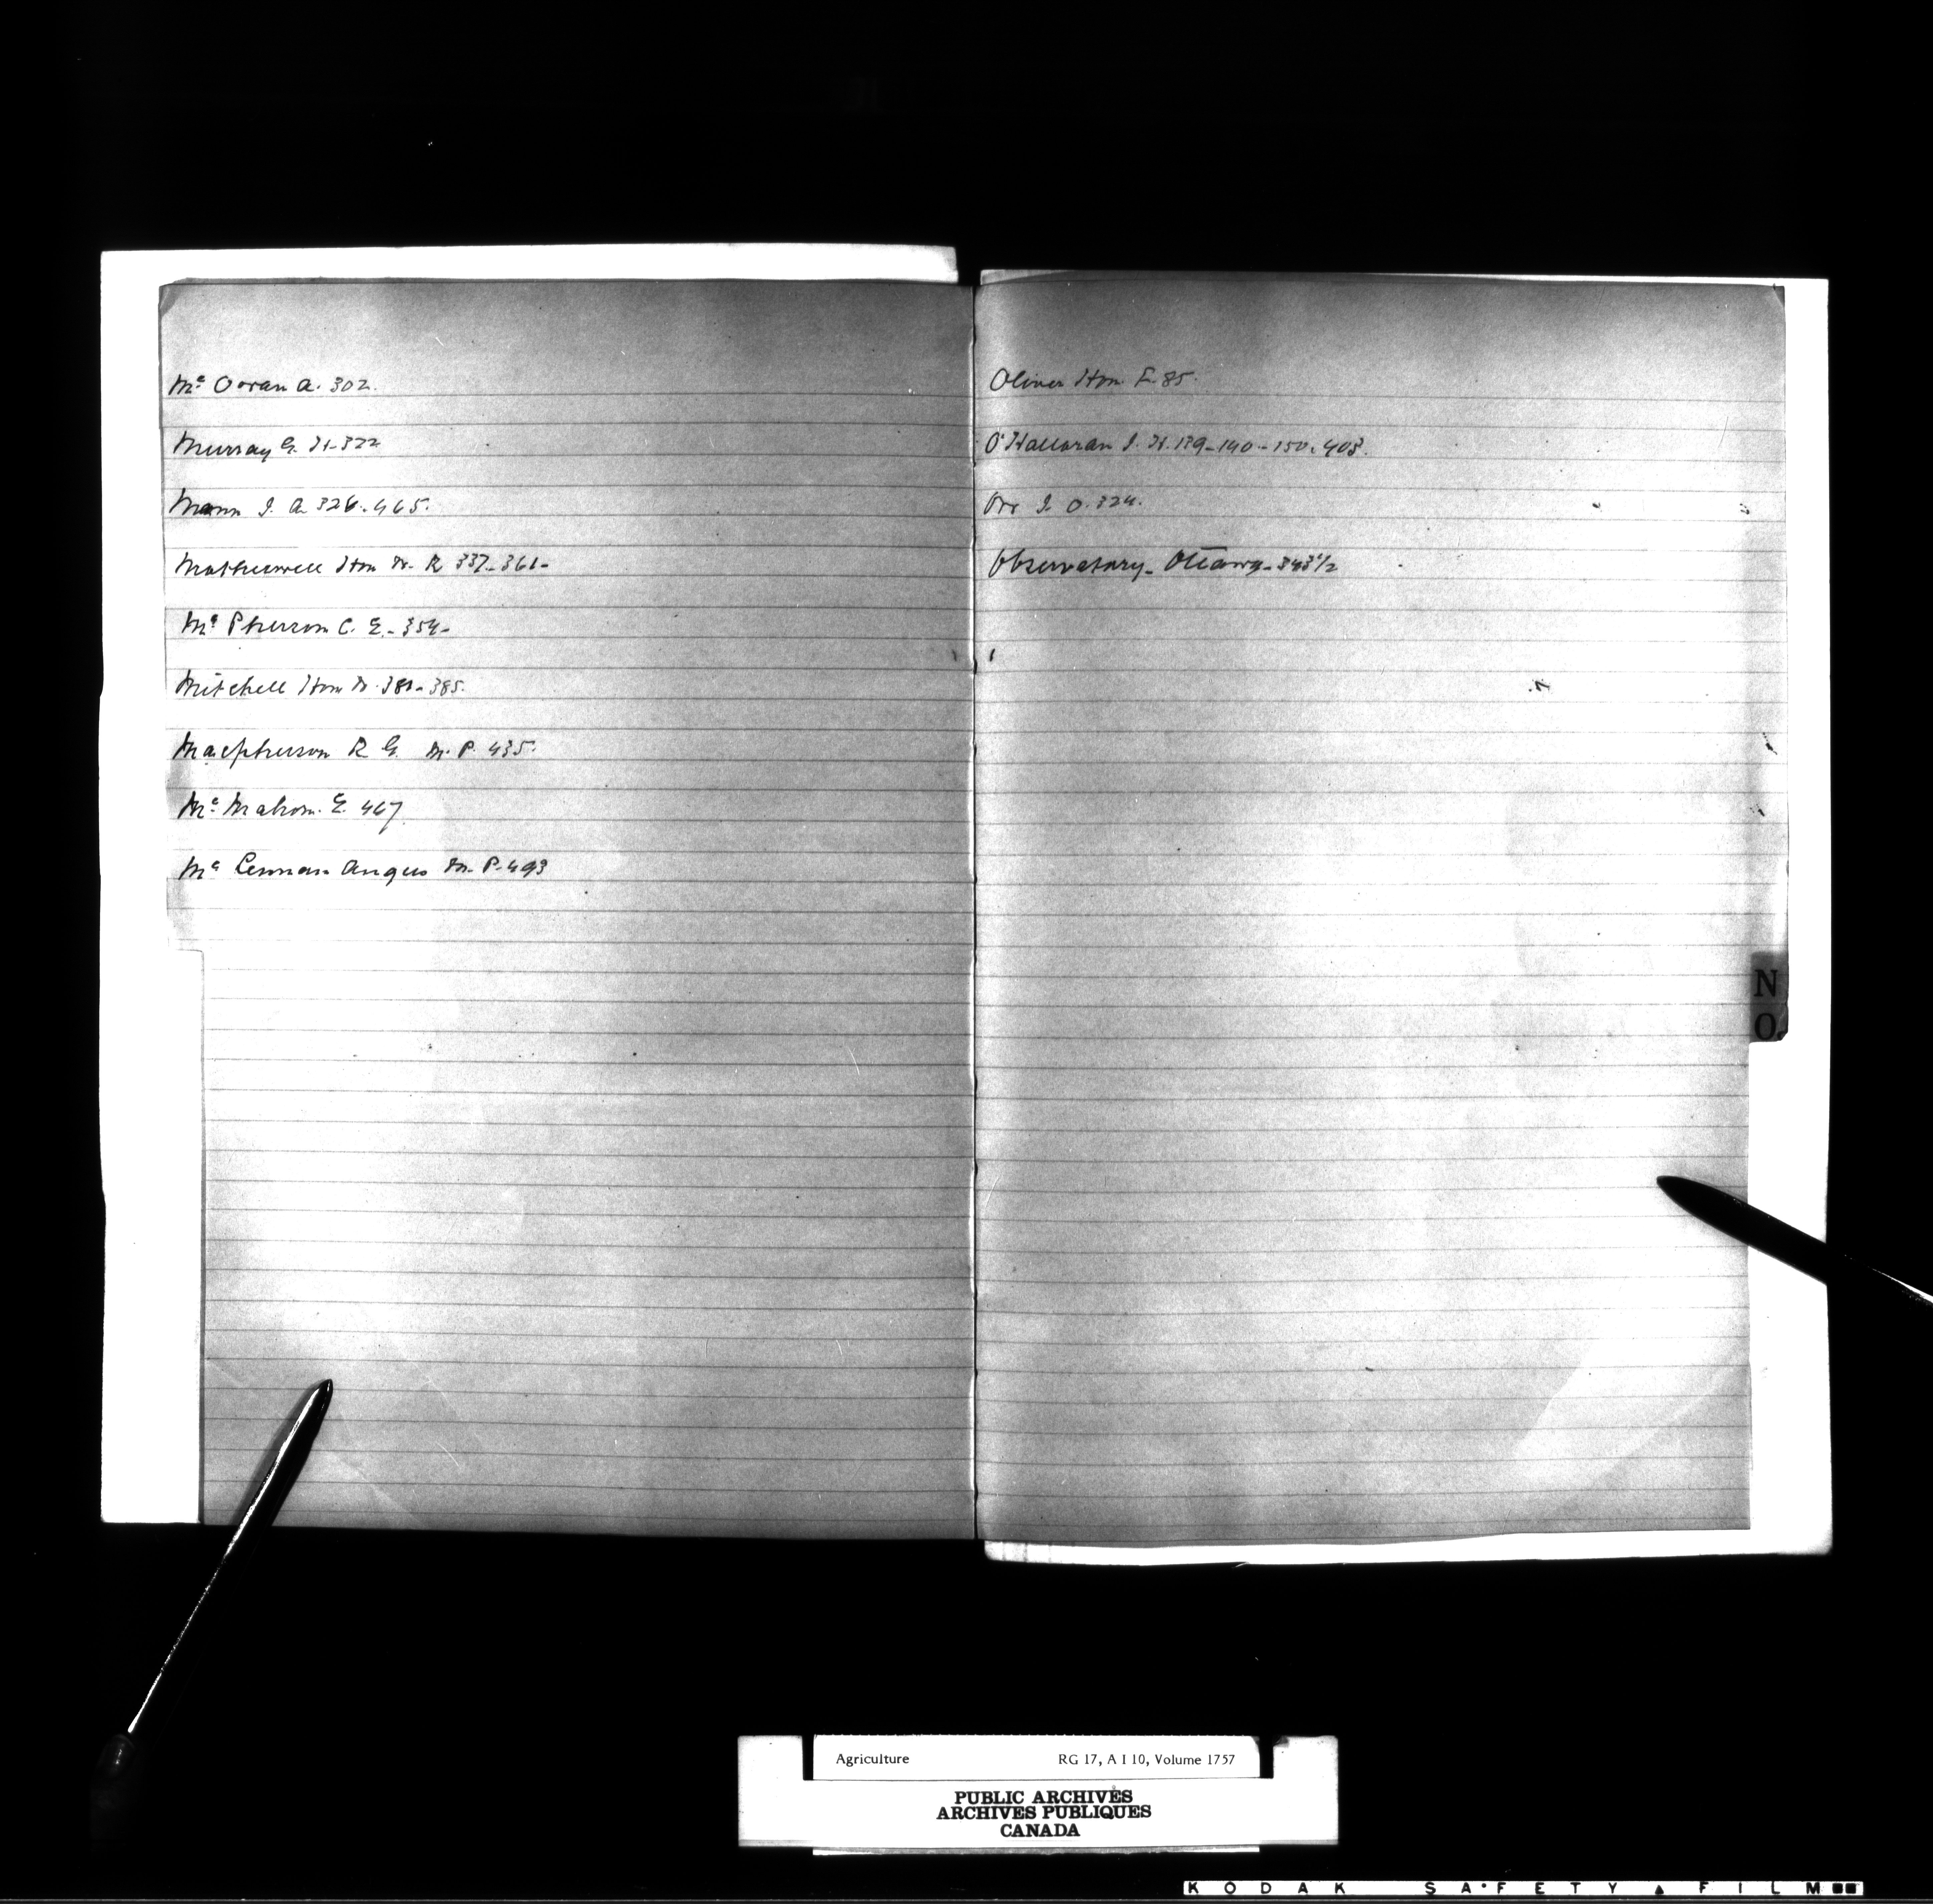 Mc Ooran A. 302.
Murray G. H-322
Mann J. A. 326-465.
Motherwell Hon W. R 337-361-
Mc Pherson C. E.-354-
Mitchell Hon W. 381-385.
Macpherson R G. M. P. 435.
Mc Mahon. E. 467
Mc Lennan Angus M. P-493
Oliver Hon. F. 85.
O'Halloran J. H. 139-140-150-403.
Orr J. O. 324.
Observatory- Ottawa-343 1/2
N
O
Agriculture RG 17, A I 10, Volume 1757
PUBLIC ARCHIVES
ARCHIVES PUBLIQUES
CANADA
KODAK SA·FETY ▲ FILM